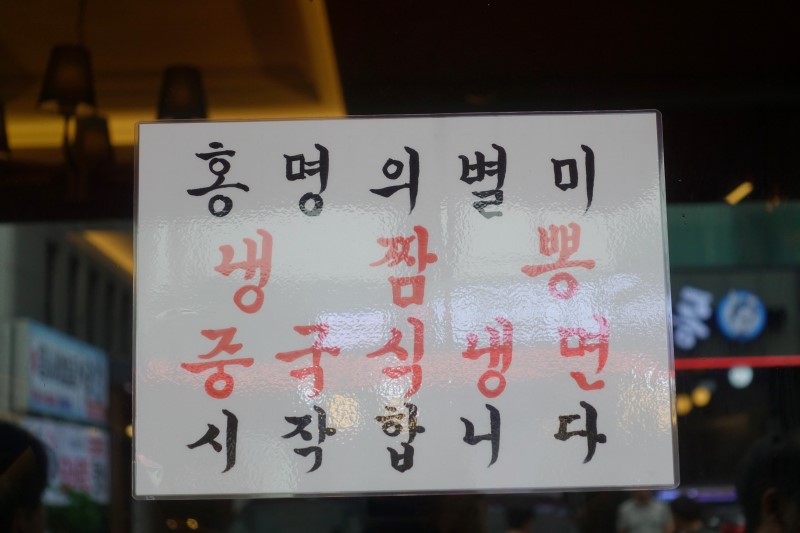 홍명의별미
냉짬뽕
중국식냉면
시작합니다